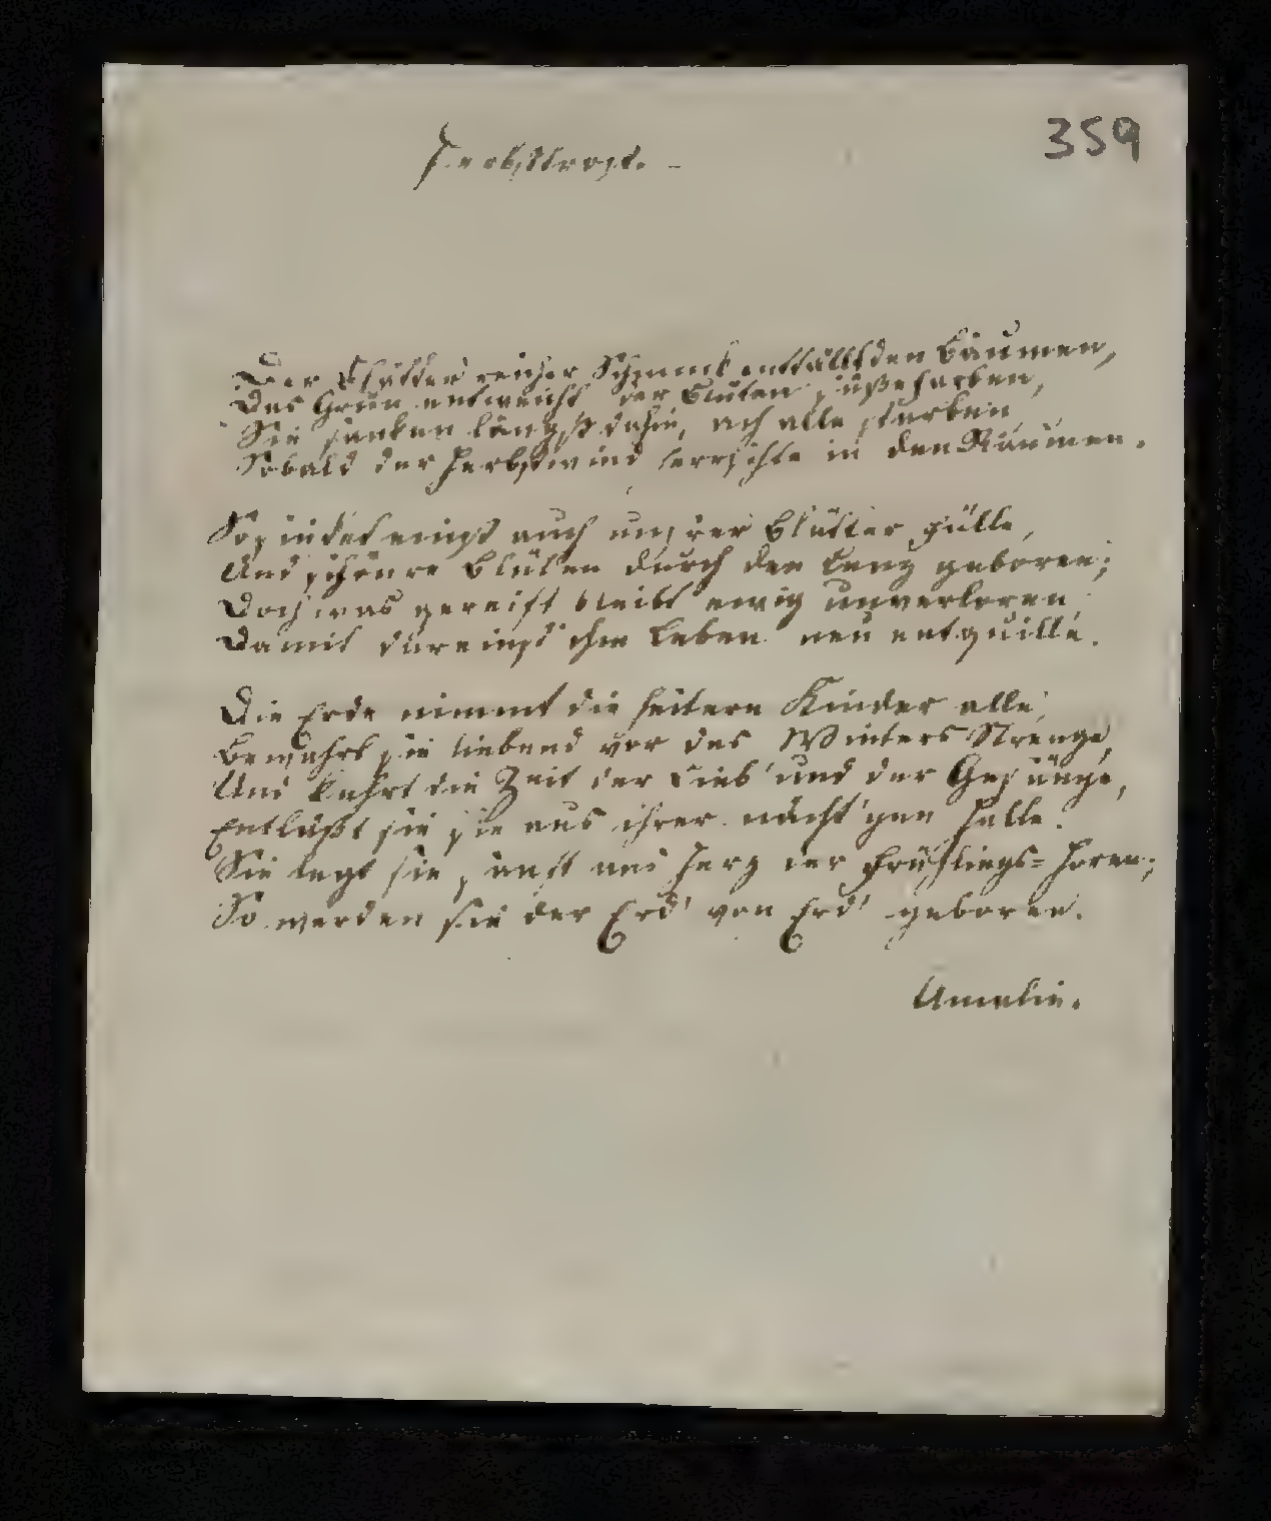 Herbsttrost. –
359
Der Blätter reicher Schmuck entfällt den Bäumen,
Das Grün entweicht der Blüten süße Farben,
Sie sanken längst dahin, ach alle starben
Sobald der Herbstwind herrschte in den Räumen.
So sindet einst auch unsrer Blätter Fülle,
Und schönre Blüten durch den Lenz geboren;
Doch was gereift bleibt ewig unverloren,
Damit dereinst ihm Leben neu entquille.
Die Erde nimmt die heitern Kinder alle,
Bewahrt sie liebend vor des Winters Strenge,
Und kehrt die Zeit der Lieb' und der Gesänge,
Entläßt sie sie aus ihrer nächt'gen Halle.
Sie legt sie sanft ans Herz der Frühlings-Horen;
So werden sie der Erd' von Erd' geboren.
Amalie.